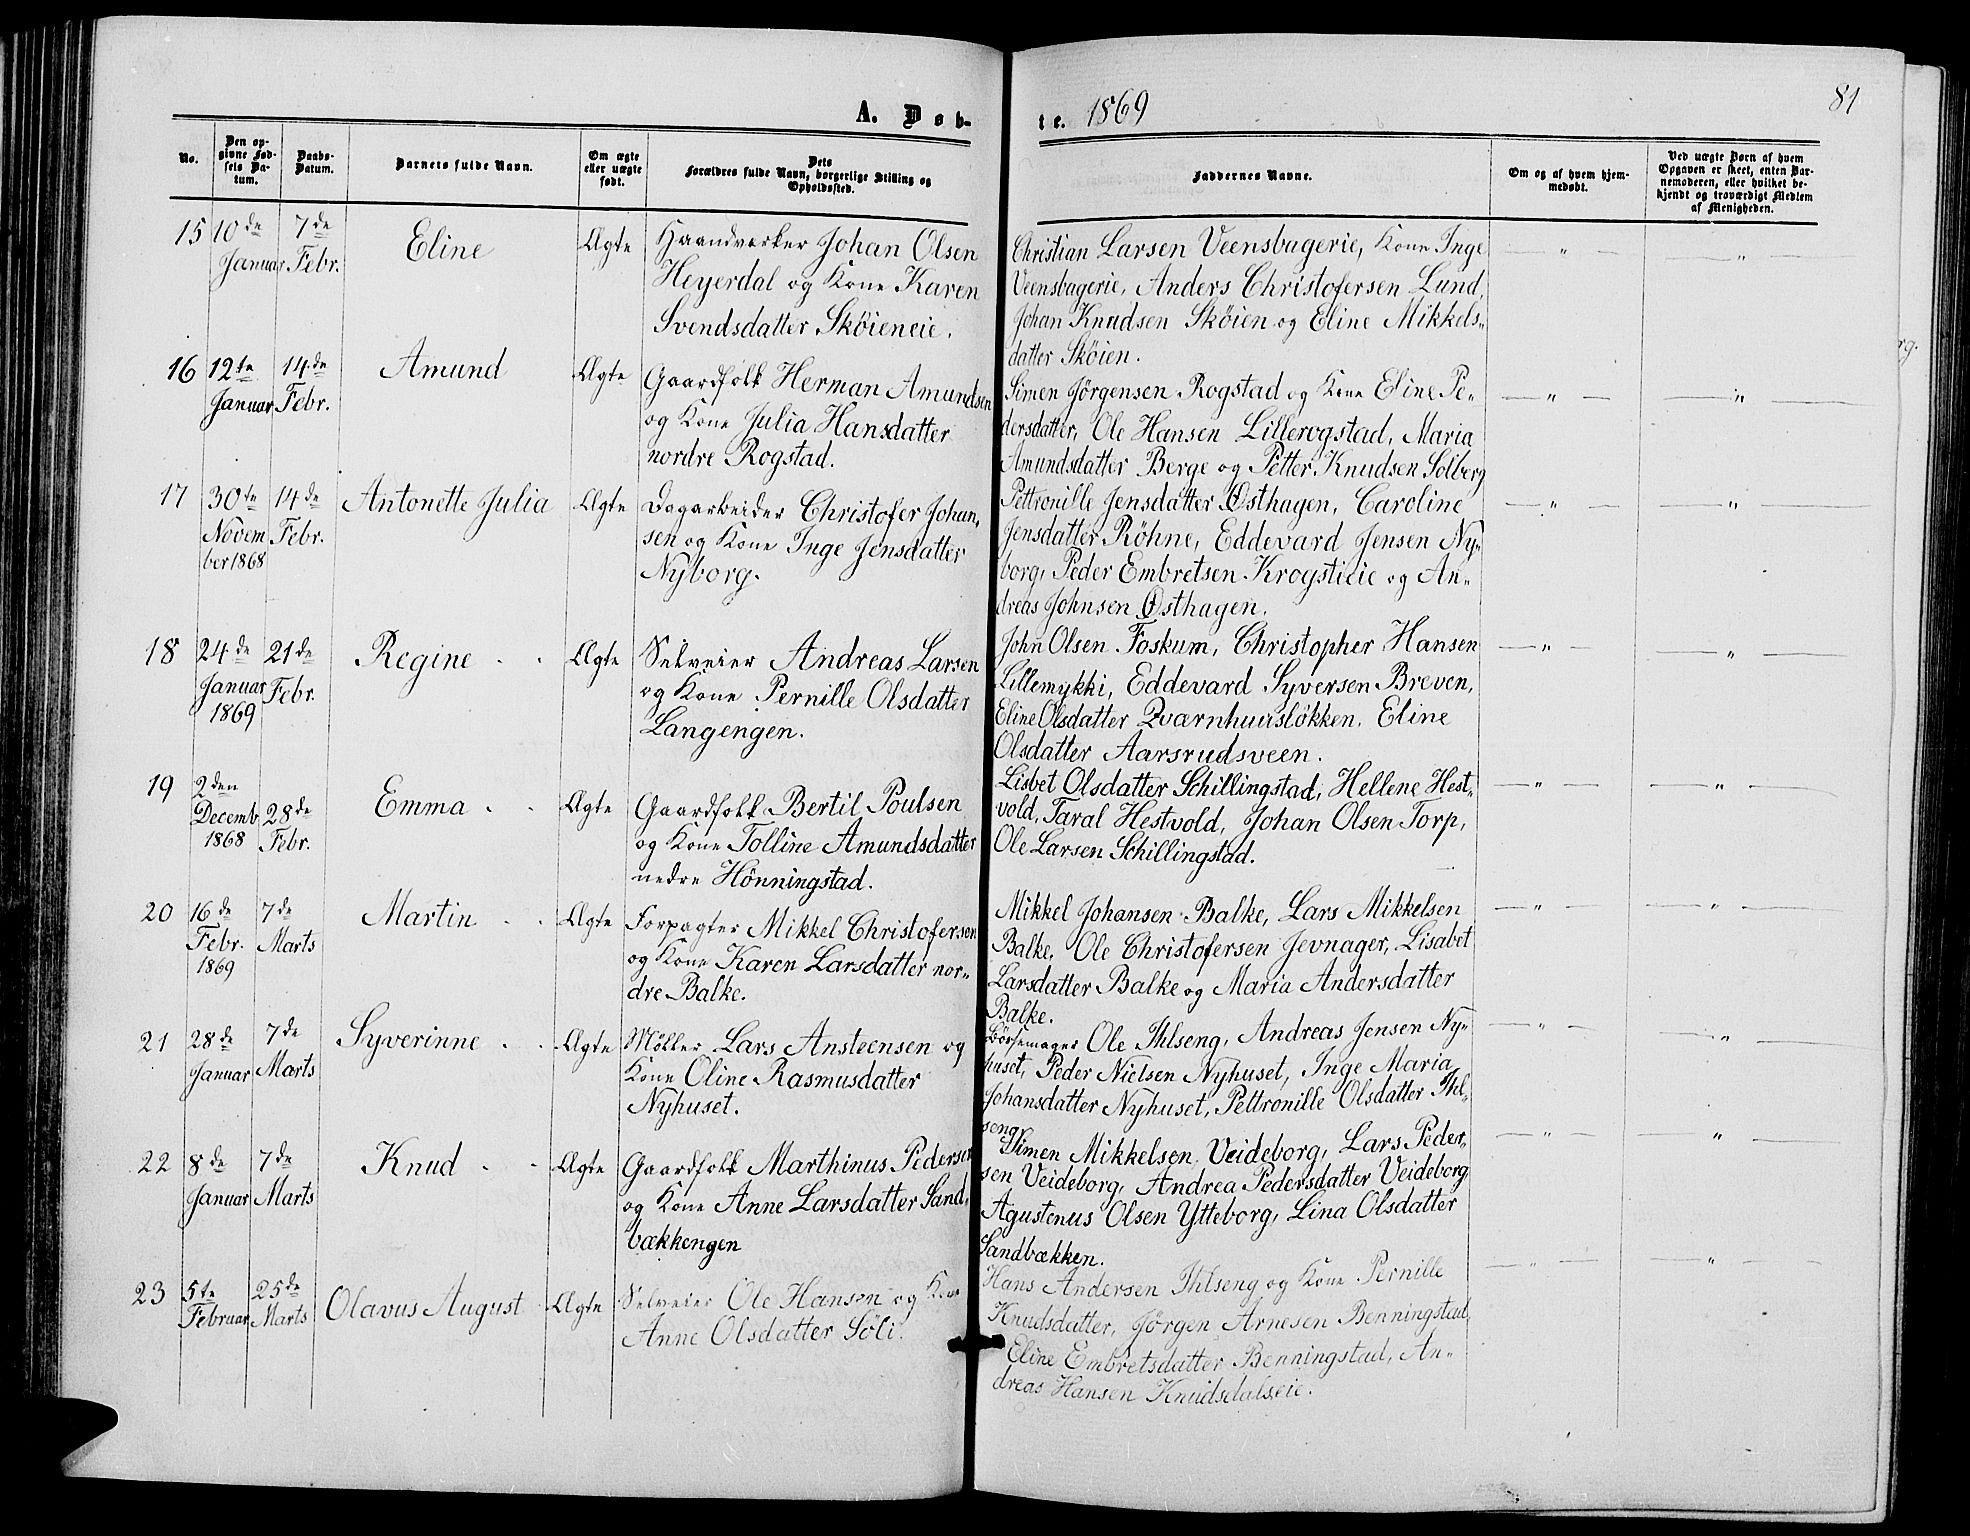 81
A. Døb-
te. 1869
No.
Den op-
givne Fød-
sels Da-
tum.
Daabs-
Datum.
Barnets fulde Navn.
Om ægte
eller uægte
født.
Dets
Forældres fulde Navn, borgerlige Stilling og
Opholdssted.
Faddernes Navne.
Om og af hvem hjem-
medøbt.
Ved uægte Børn af hvem
Opgaven er skeet, enten Bar-
nemoderen, eller hvilket be-
kjendt og troværdigt Medlem
af Menigheden.
15 10de Januar 7de Febr. Eline Ægte
Haandværker Johan Olsen
Heyerdal og Kone Karen
Svendsdatter Skøieneie.
Christian Larsen Veensbagerie, Kone Inge
Veensbagerie, Anders Christofersen Lund,
Johan Knudsen Skøien og Eline Mikkels-
datter Skøien.
16 12te Januar 14de Febr. Amund Ægte
Gaardfolk Herman Amundsen
og Kone Julia Hansdatter
nordre Rogstad.
Simen Jørgensen Rogstad og Kone Eline Pe-
dersdatter, Ole Hansen Lillerogstad, Maria
Amundsdatter Berge og Petter Knudsen Solberg
17 30te Novem ber 1868 14de Febr. Antonette Julia Ægte
Dagarbeider Christofer Johan-
sen og Kone Inge Jensdatter
Nyborg.
Pettronille Jensdatter Østhagen, Caroline
Jensdatter Røhne, Eddevard Jensen Ny-
borg, Peder Embretsen Krogstieie og An-
dreas Johnsen Østhagen.
18 24de Januar 1869 21de Febr. Regine Ægte
Selveier Andreas Larsen
og Kone Pernille Olsdatter
Langengen.
John Olsen Foskum, Christopher Hansen
Lillemykki, Eddevard Syversen Breven,
Eline Olsdatter Qværnhuusløkken, Eline
Olsdatter Aarsrudsveen.
19 2den Decemb 1868 28de Febr. Emma Ægte
Gaardfolk Bertil Poulsen
og Kone Tolline Amundsdatter
nedre Hønningstad.
Lisbet Olsdatter Schillingstad, Hellene Hest-
vold, Taral Hestvold, Johan Olsen Torp,
Ole Larsen Schillingstad.
20 16de Febr. 1869 7de Marts Martin Ægte
Forpagter Mikkel Christofersen
og Kone Karen Larsdatter nor-
dre Balke.
Mikkel Johansen Balke, Lars Mikkelsen
Balke, Ole Christofersen Jevnager, Lisabet
Larsdatter Balke og Maria Andersdatter
Balke.
21 28de Januar 7de Marts Syverinne Ægte
Møller Lars Ansteensen og
Kone Oline Rasmusdatter
Nyhuset.
Børsemager Ole Ihlseng, Andreas Jensen Ny-
huset, Peder Nielsen Nyhuset, Inge Maria
Johansdatter Nyhuset, Pettronille Olsdatter Ihl-
seng.
22 8de Januar 7de Marts Knud Ægte
Gaardfolk Marthinus Pedersen
og Kone Anne Larsdatter Sand-
bækkengen
Simen Mikkelsen Veideborg, Lars Peder-
sen Veideborg, Andrea Pedersdatter Veideborg
Agustenus Olsen Ytteborg, Lina Olsdatter
Sandbækken.
23 5te Februar 25de Marts Olavus August Ægte
Selveier Ole Hansen og Kone
Anne Olsdatter Søli.
Hans Andersen Ihlseng og Kone Pernille
Knudsdatter, Jørgen Arnesen Benningstad,
Eline Embretsdatter Benningstad, An-
dreas Hansen Knudsdalseie.